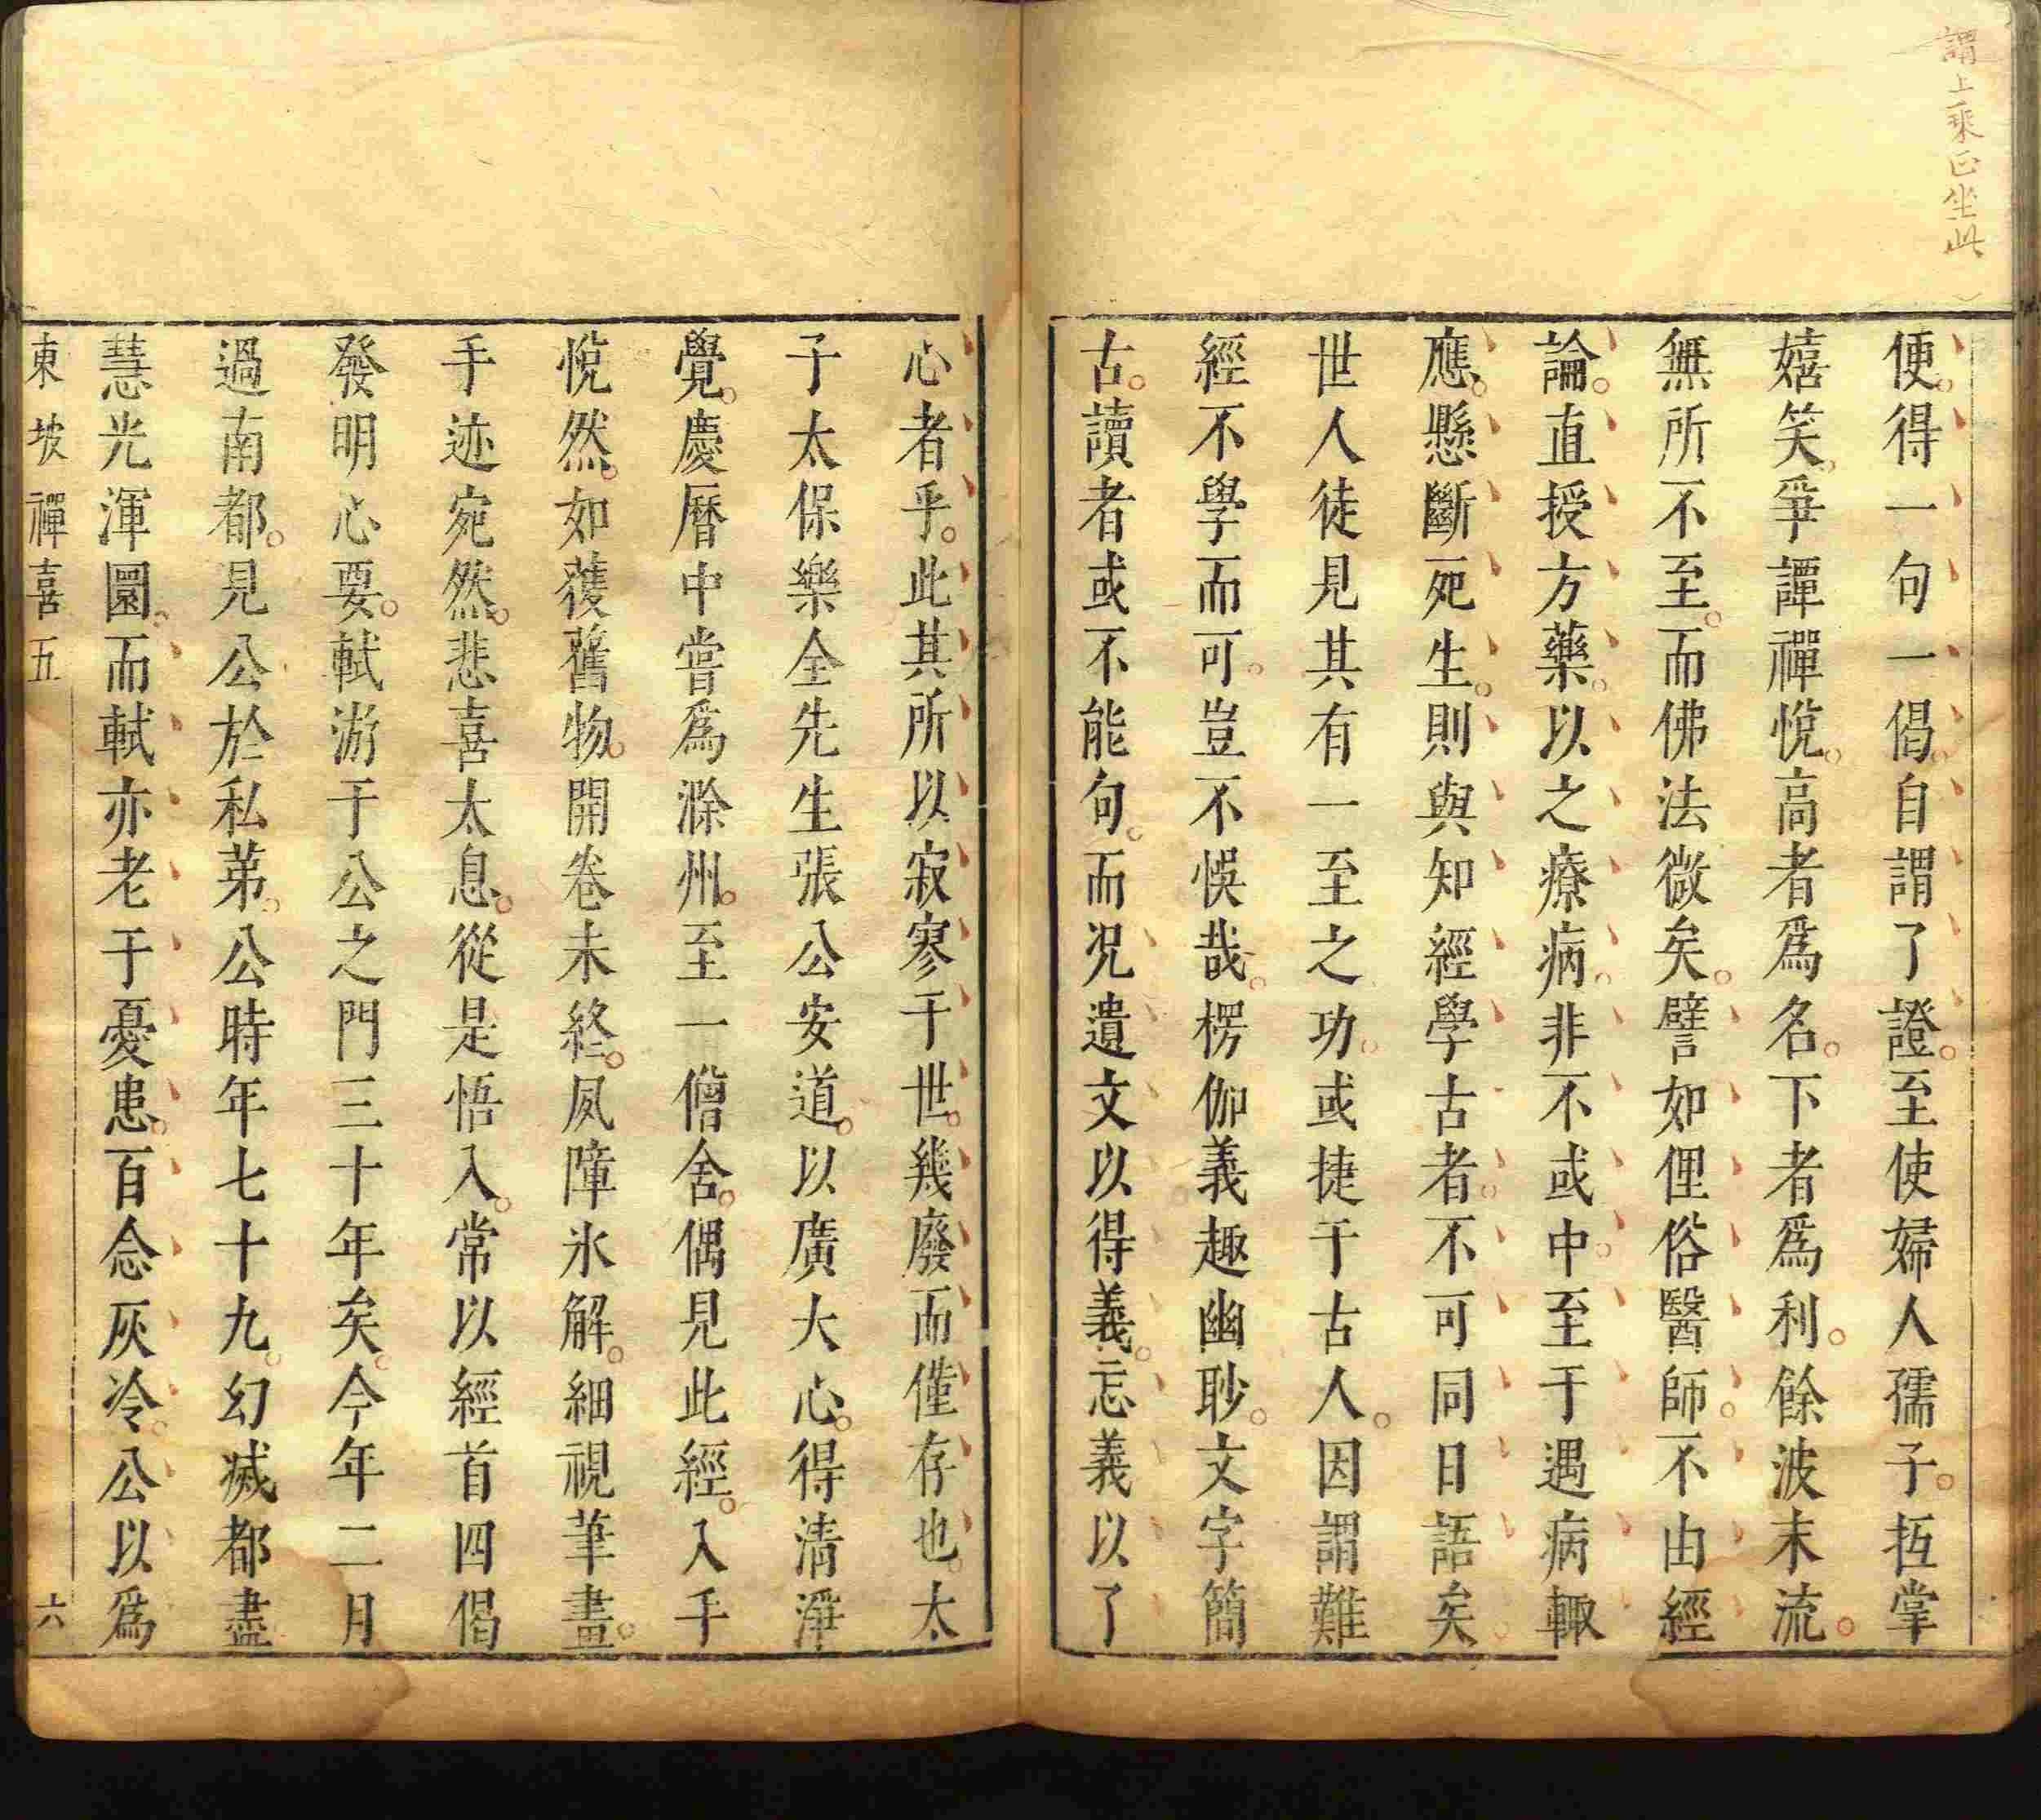 謂上乘正坐此
便得一句一偈自謂了證至使婦人孺子抵掌
嬉笑爭譚禪悅高者爲名下者爲利餘波末流
無所不至而佛法微矣譬如俚俗醫師不由經
論直授方藥以之療病非不或中至于遇病輒
應懸斷死生則與知經學古者不可同日語矣
世人徒見其有一至之功或捷于古人因謂難
經不學而可豈不悞哉楞伽義趣幽眇文字簡
古讀者或不能句而況遺文以得義忘義以了
心者乎此其所以寂寥于世幾廢而僅存也太
子太保樂全先生張公安道以廣大心得清淨
覺慶曆中嘗爲滁州至一僧舍偶見此經入手
悅然如獲舊物開卷未終夙障氷解細視筆畫
手迹宛然悲喜太息從是悟入常以經首四偈
發明心要軾游于公之門三十年矣今年二月
過南都見公於私苐公時年七十九幻滅都盡
慧光渾圜而軾亦老于憂患百念灰冷公以爲
東坡禪喜五 六